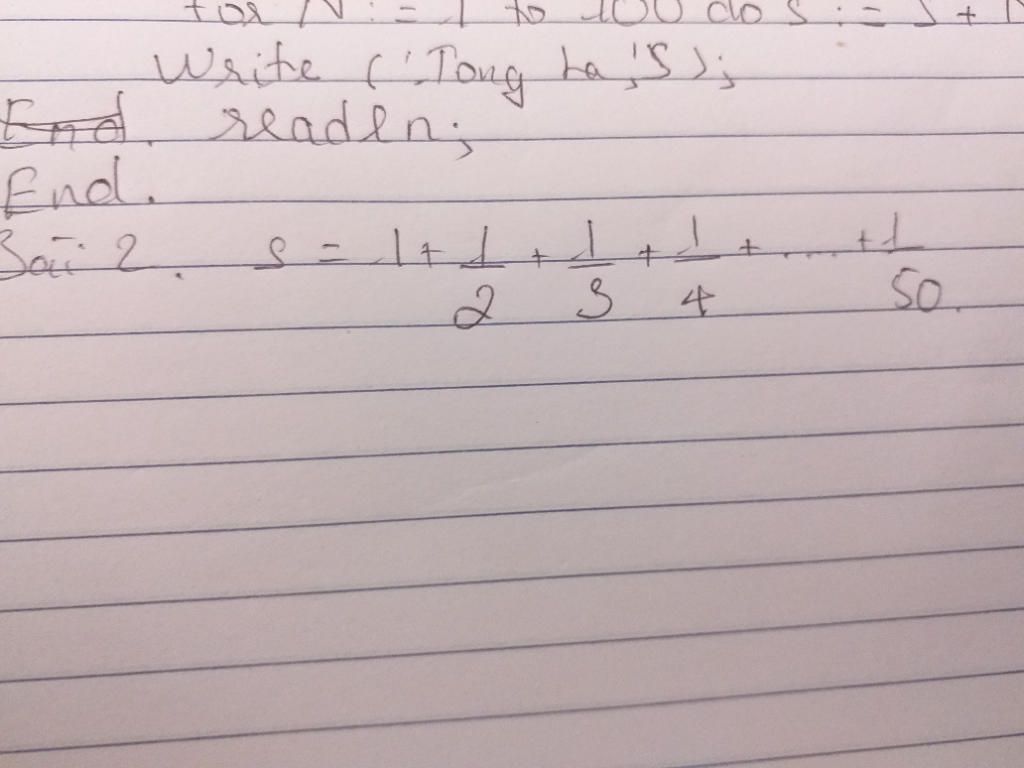 for N := 1 to 100 do S := S + N
Write ('Tong La ,'S);
End. readln;
End.
Bài 2. S = 1 + 1/2 + 1/3 + 1/4 + ..... + 1/50.